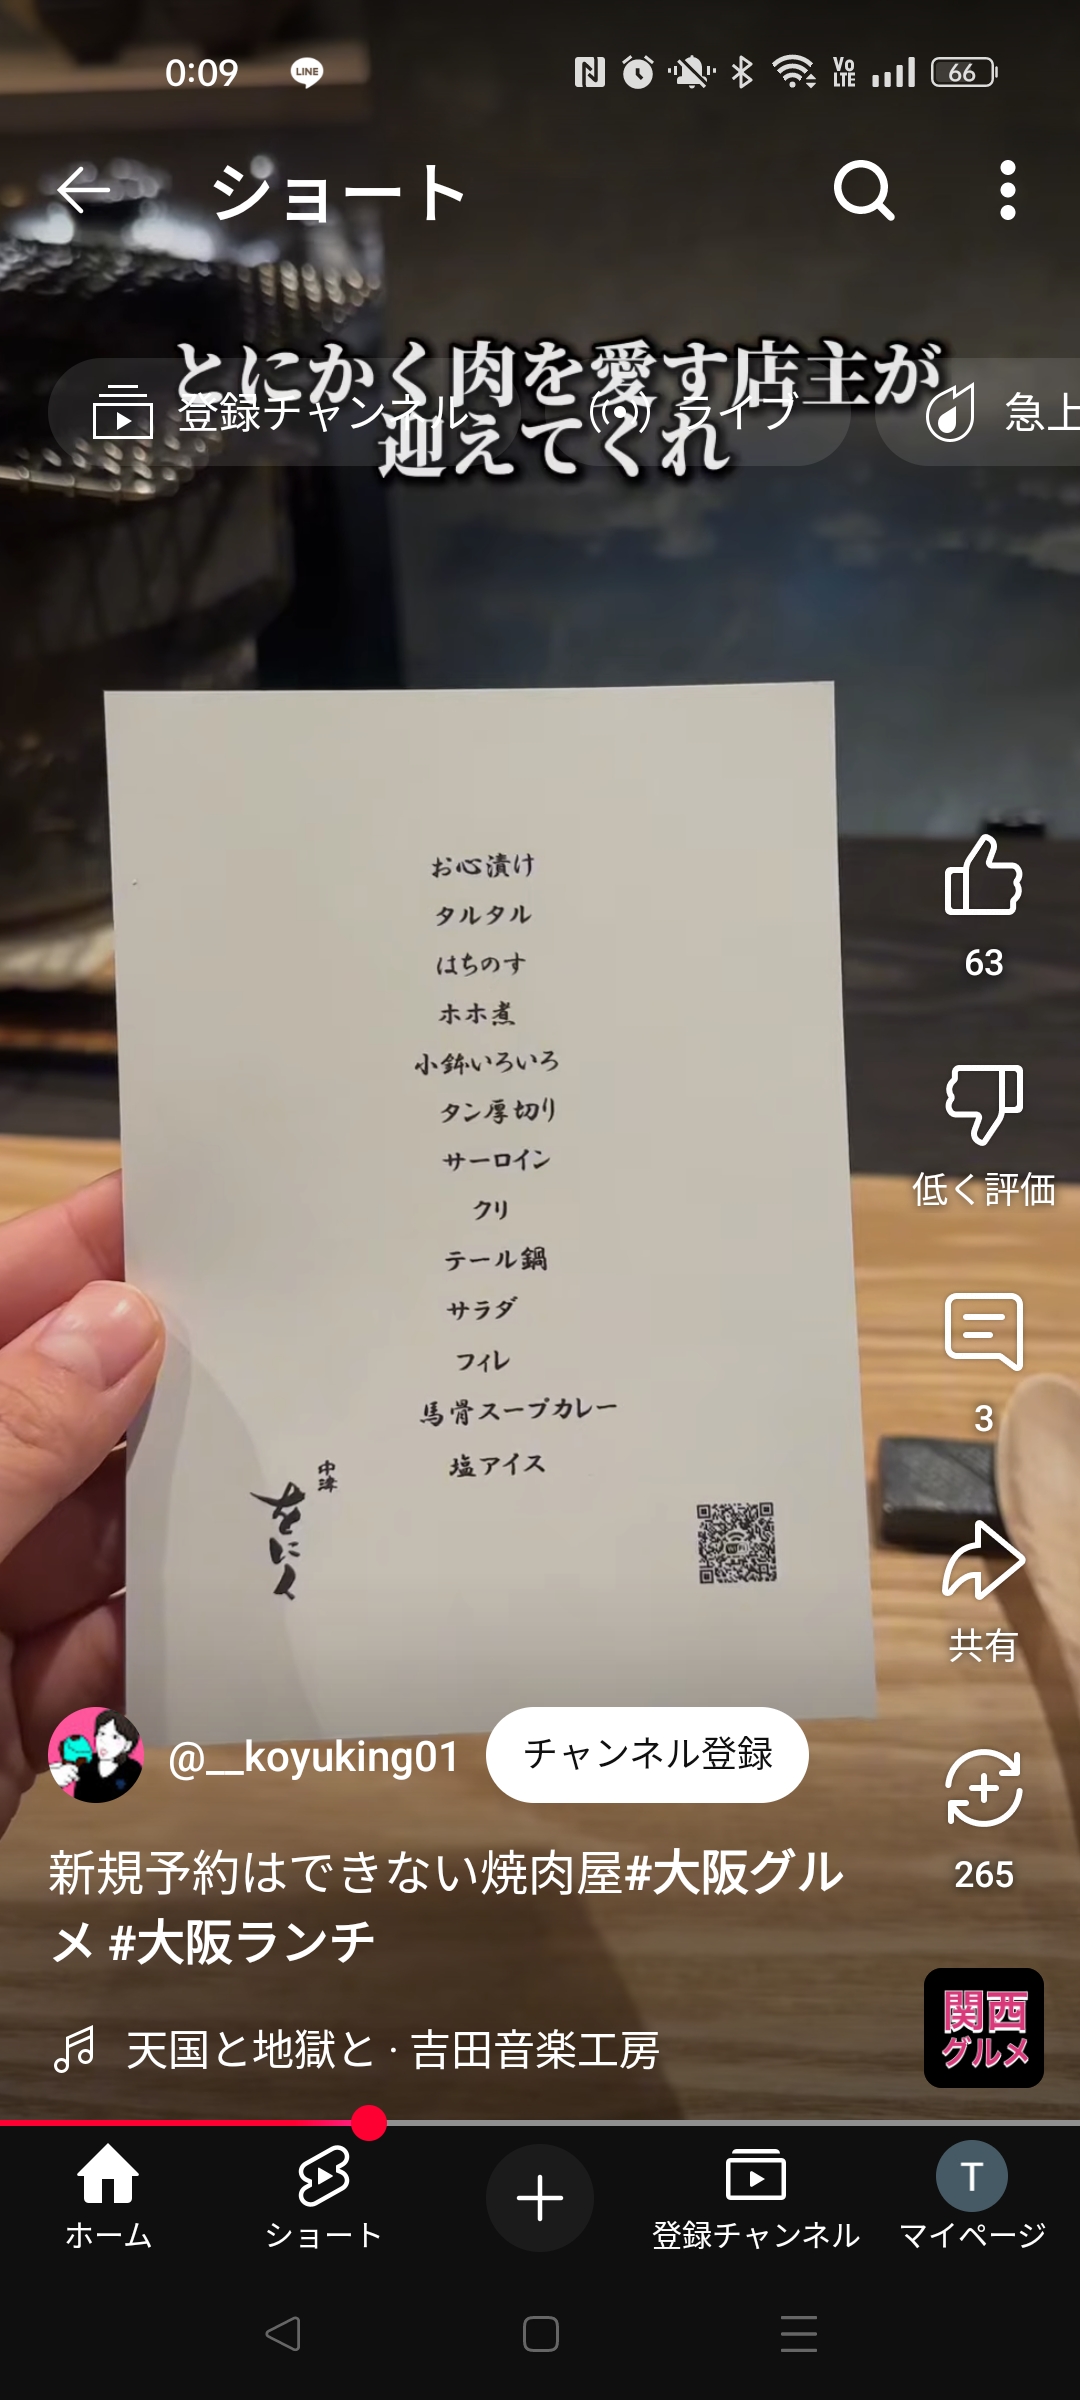 0:09
LINE
Vo
LTE
66
ショート
とにかく肉を愛す店主が
迎えてくれ
登録チャンネル
ライブ
急上
お心漬け
タルタル
はちのす
ホホ煮
小鉢いろいろ
タン厚切り
サーロイン
クリ
テール鍋
サラダ
フィレ
馬骨スープカレー
塩アイス
をにく
63
低く評価
3
共有
265
@__koyuking01
チャンネル登録
新規予約はできない焼肉屋#大阪グル
メ #大阪ランチ
関西
グルメ
天国と地獄と · 吉田音楽工房
ホーム
ショート
登録チャンネル
T
マイページ